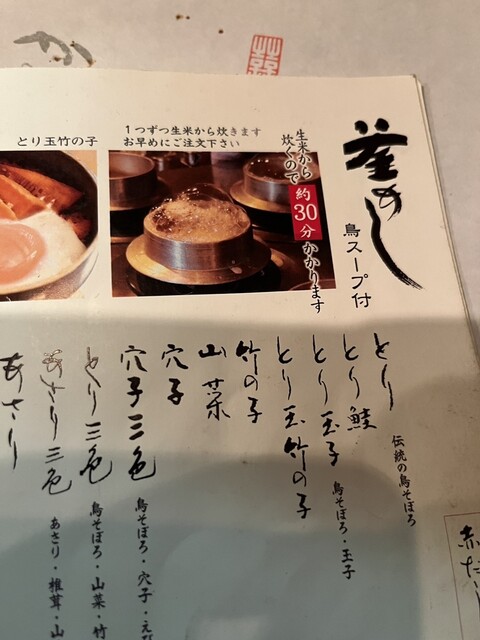 釜めし
鳥スープ付
生米から
炊くので
約30分
かかります
1つずつ生米から炊きます
お早めにご注文下さい
とり玉竹の子
とり
伝統の鳥そぼろ
とり鮭
とり玉子
鳥そぼろ・玉子
とり玉竹の子
竹の子
山菜
穴子
穴子三色
鳥そぼろ・穴子・
とり三色
鳥そぼろ・山菜・竹
あさり三色
あさり・椎茸・山
あさり
赤だし